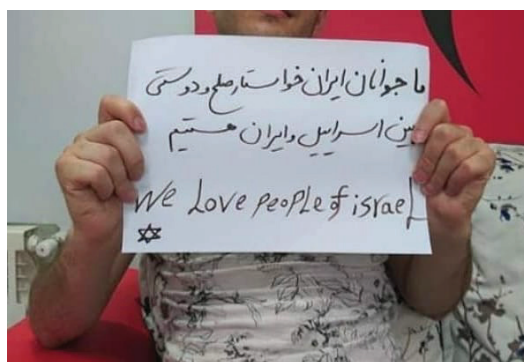 ما جوانان ایران خواستار صلح و دوستی
بین اسراییل و ایران هستیم
We Love people of israel